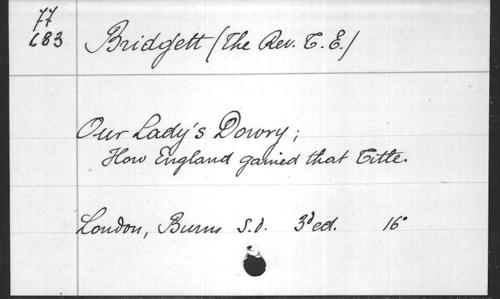 77
683
Bridgett (The Rev. T. E.)
Our Lady's Dowry;
How England gained that Title.
London, Burns s.d. 3d ed. 16°